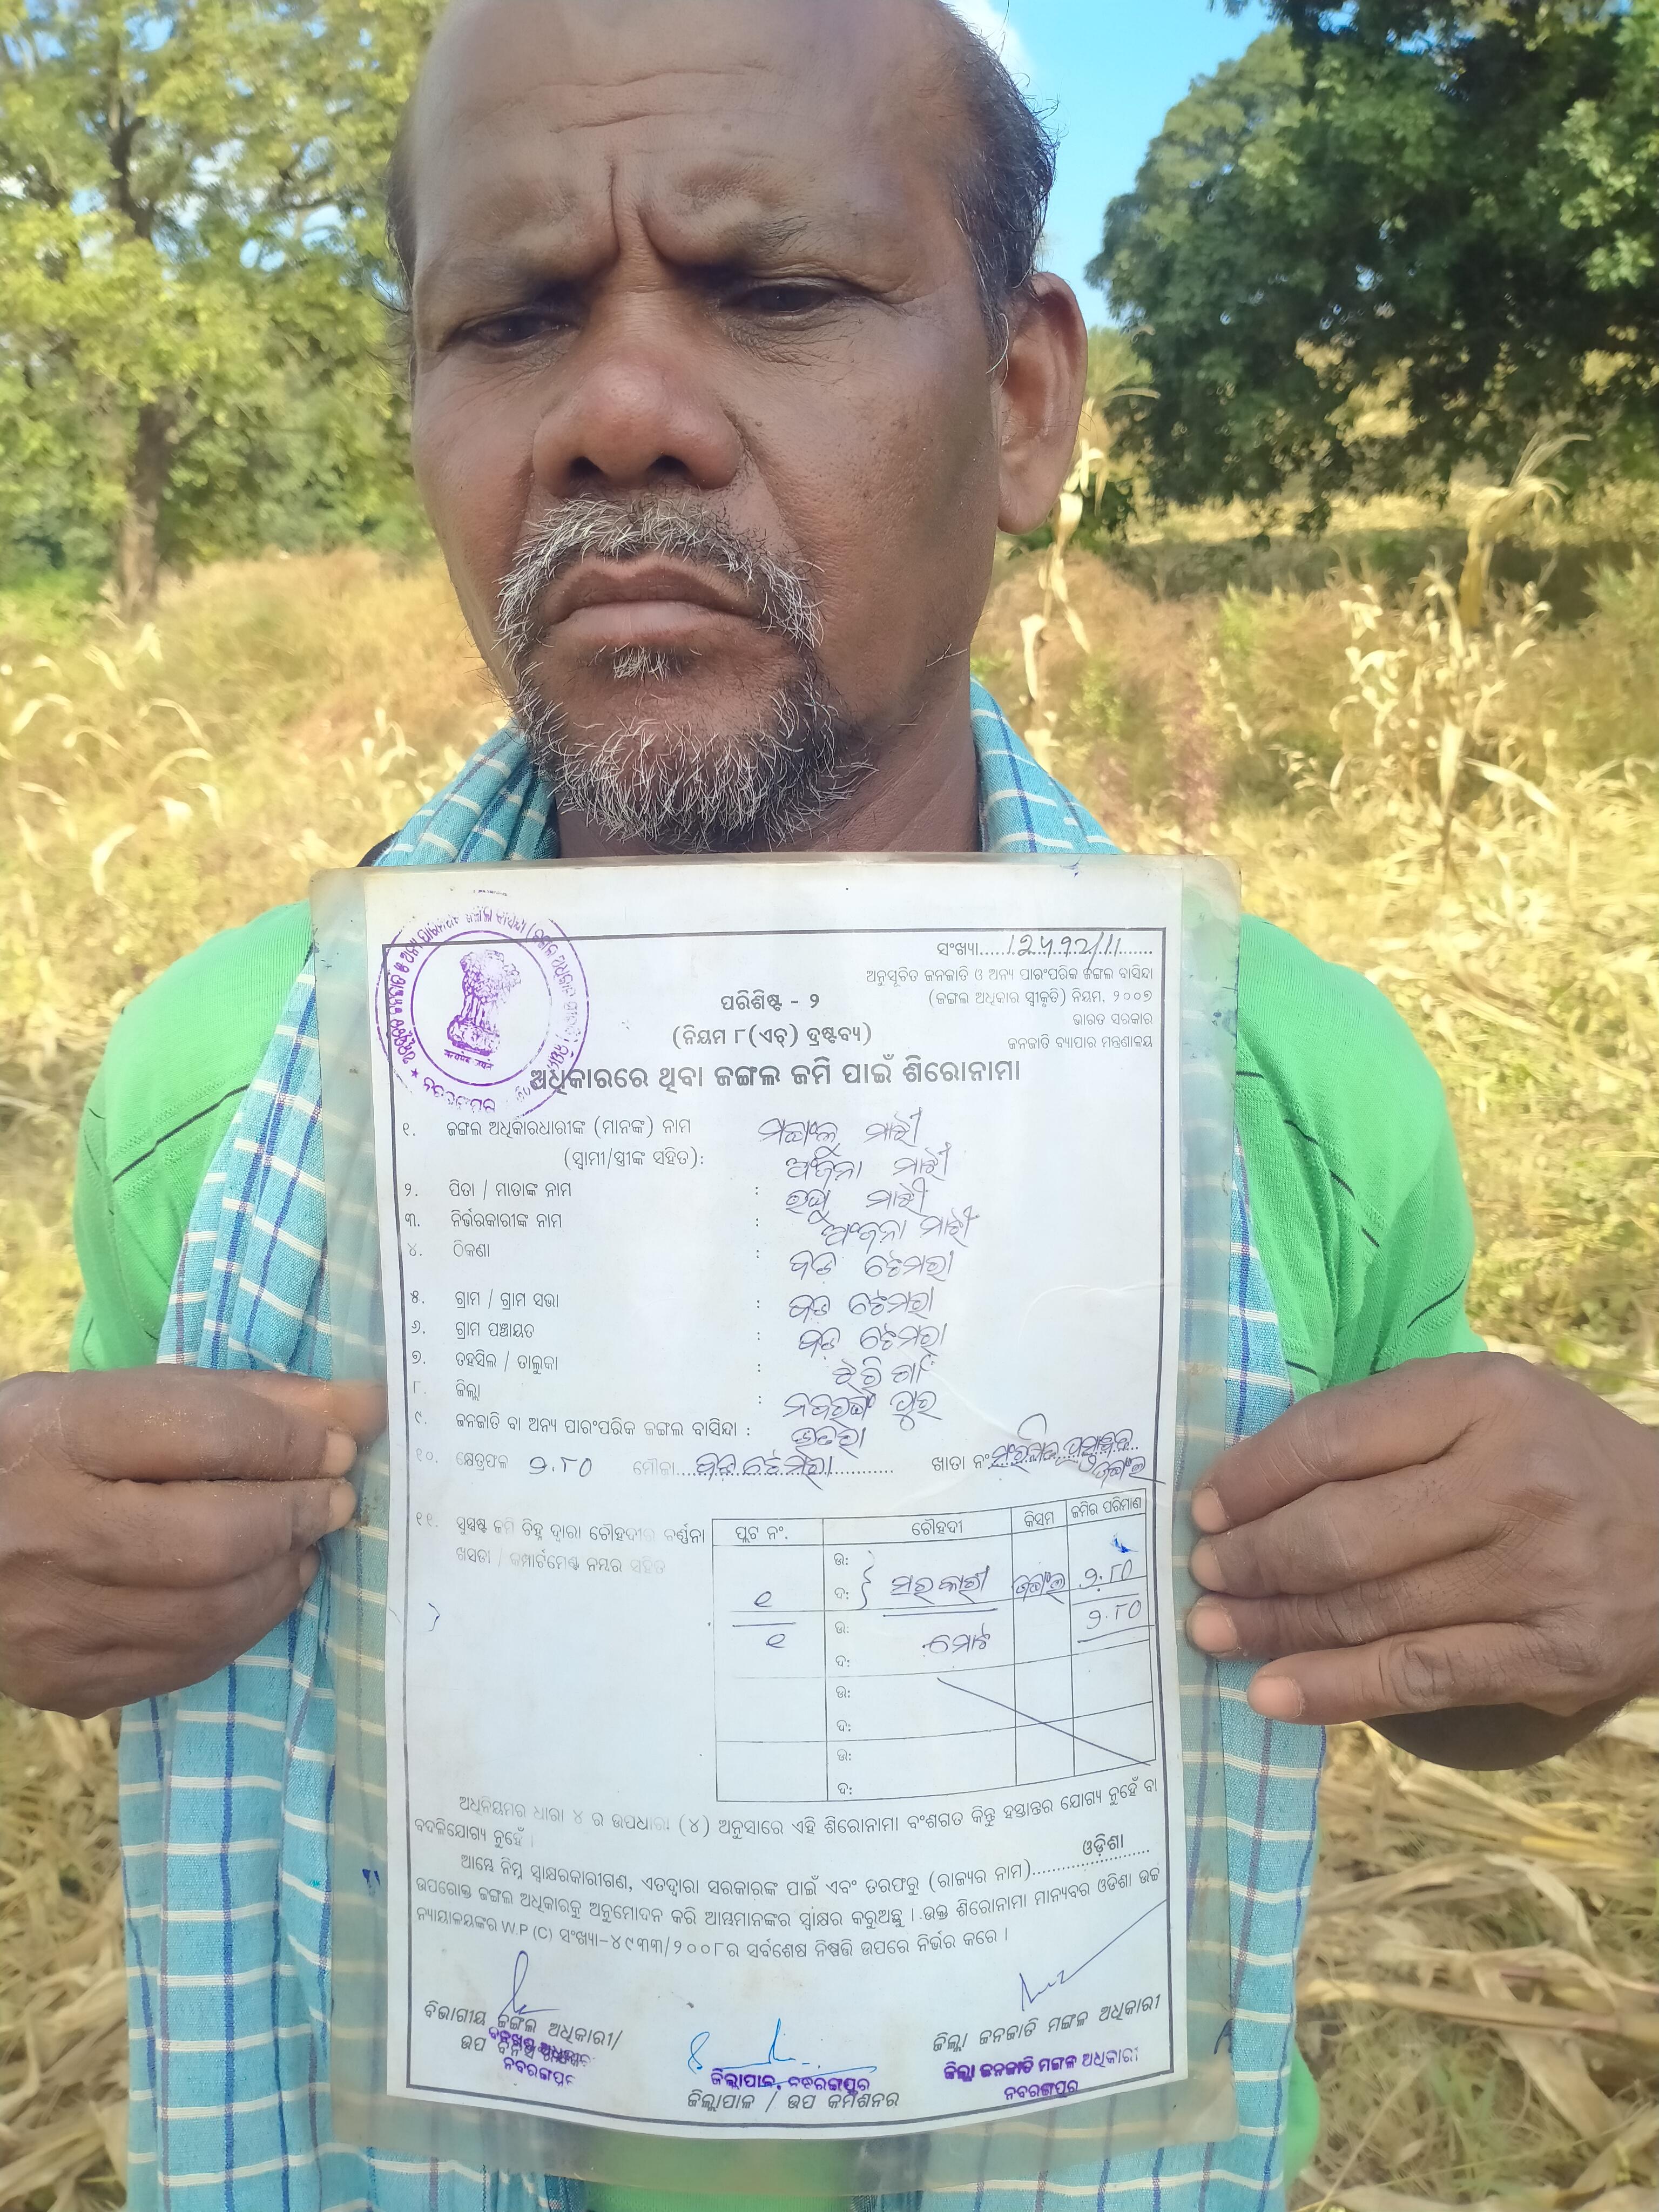 ସଂଖ୍ୟା
ଅନୁସୂଚିତ ଜନଜାତି ଓ ଅନ୍ୟ ପାରଂପରିକ ଜଙ୍ଗଲ ବାସିନ୍ଦା
(ଜଙ୍ଗଲ ଅଧିକାର ସ୍ୱୀକୃତି) ନିୟମ, ୨୦୦୭
ଭାରତ ସରକାର
ଜନଜାତି ବ୍ୟାପାର ମନ୍ତ୍ରଣାଳୟ
ପରିଶିଷ୍ଟ - ୨
(ନିୟମ ୮(ଏଚ୍) ଦ୍ରଷ୍ଟବ୍ୟ)
ଅଧିକାରରେ ଥିବା ଜଙ୍ଗଲ ଜମି ପାଇଁ ଶିରୋନାମା
୧. ଜଙ୍ଗଲ ଅଧିକାରଧାରୀଙ୍କ (ମାନଙ୍କ) ନାମ ମାଝୀ
(ସ୍ୱାମୀ/ସ୍ତ୍ରୀଙ୍କ ସହିତ): ମାଝୀ
୨. ପିତା / ମାତାଙ୍କ ନାମ : ମାଝୀ
୩. ନିର୍ଭରକାରୀଙ୍କ ନାମ : ମାଝୀ
୪. ଠିକଣା : ବଡ଼ ଟେମରା
୫. ଗ୍ରାମ / ଗ୍ରାମ ସଭା : ବଡ଼ ଟେମରା
୬. ଗ୍ରାମ ପଞ୍ଚାୟତ : ବଡ଼ ଟେମରା
୭. ତହସିଲ / ତାଲୁକା : ଝରିଗାଁ
୮. ଜିଲ୍ଲା : ନବରଙ୍ଗପୁର
୯. ଜନଜାତି ବା ଅନ୍ୟ ପାରଂପରିକ ଜଙ୍ଗଲ ବାସିନ୍ଦା : ଭତରା
୧୦. କ୍ଷେତ୍ରଫଳ ୨.୮୦ ମୌଜା ବଡ଼ ଟେମରା ଖାତା ନଂ
ଜଙ୍ଗଲ
୧୧. ସୁସ୍ପଷ୍ଟ ଜମି ଚିହ୍ନ ଦ୍ୱାରା ଚୌହଦୀର ବର୍ଣ୍ଣନା
ଖସଡା / କମ୍ପାର୍ଟମେଣ୍ଟ ନମ୍ବର ସହିତ
ପ୍ଲଟ ନଂ. ଚୌହଦୀ କିସମ ଜମିର ପରିମାଣ
ଉ:
୧ ଦ: ସରକାରୀ ଜଙ୍ଗଲ ୨.୮୦
ଉ: ୨.୮୦
୧ ମୋଟ
ଦ:
ଉ:
ଦ:
ଉ:
ଦ:
ଅଧିନିୟମର ଧାରା ୪ ର ଉପଧାରା (୪) ଅନୁସାରେ ଏହି ଶିରୋନାମା ବଂଶଗତ କିନ୍ତୁ ହସ୍ତାନ୍ତର ଯୋଗ୍ୟ ନୁହେଁ ବା
ବଦଳିଯୋଗ୍ୟ ନୁହେଁ ।
ଆମ୍ଭେ ନିମ୍ନ ସ୍ୱାକ୍ଷରକାରୀଗଣ, ଏତଦ୍ୱାରା ସରକାରଙ୍କ ପାଇଁ ଏବଂ ତରଫରୁ (ରାଜ୍ୟର ନାମ) ଓଡ଼ିଶା
ଉପରୋକ୍ତ ଜଙ୍ଗଲ ଅଧିକାରକୁ ଅନୁମୋଦନ କରି ଆମ୍ଭମାନଙ୍କର ସ୍ୱାକ୍ଷର କରୁଅଛୁ । ଉକ୍ତ ଶିରୋନାମା ମାନ୍ୟବର ଓଡିଶା ଉଚ୍ଚ
ନ୍ୟାୟାଳୟଙ୍କର W.P (C) ସଂଖ୍ୟା-୪୯୩୩/୨୦୦୮ର ସର୍ବଶେଷ ନିଷ୍ପତ୍ତି ଉପରେ ନିର୍ଭର କରେ ।
ବିଭାଗୀୟ ଜଙ୍ଗଲ ଅଧିକାରୀ/
ଉପ
ନବରଙ୍ଗପୁର
ଜିଲ୍ଲାପାଳ, ନବରଙ୍ଗପୁର
ଜିଲ୍ଲାପାଳ / ଉପ କମିଶନର
ଜିଲ୍ଲା ଜନଜାତି ମଙ୍ଗଳ ଅଧିକାରୀ
ଜିଲ୍ଲା ଜନଜାତି ମଙ୍ଗଳ ଅଧିକାରୀ
ନବରଙ୍ଗପୁର